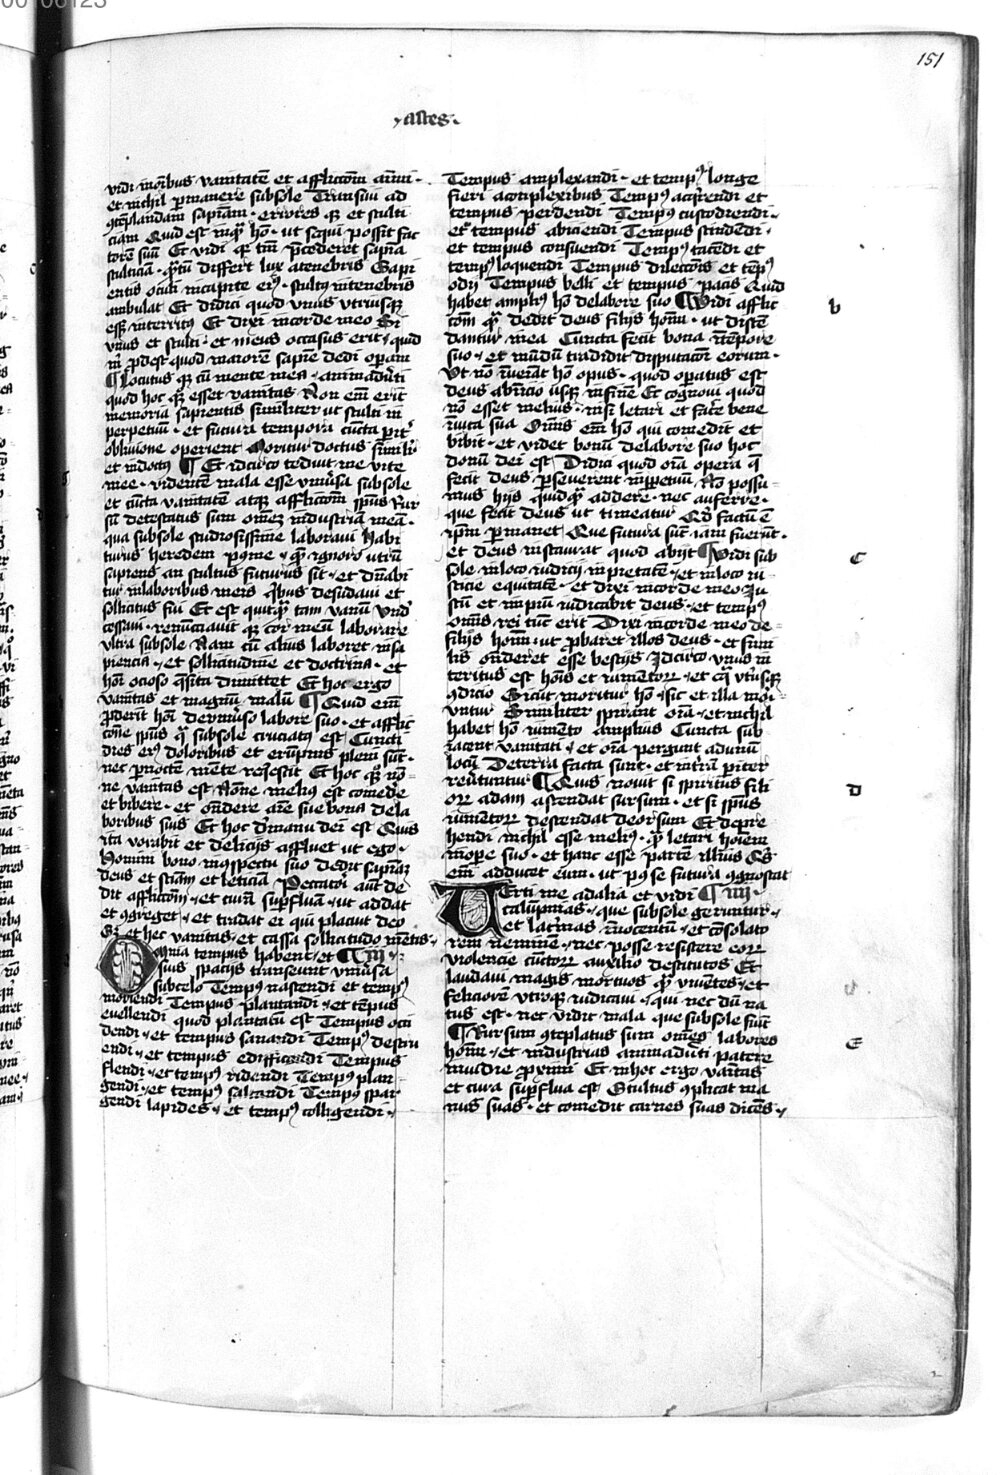 151
yastes.
vidi in om̄ibus vanitatē et afflictōm animi.
et nichil p̄manere sub sole Transiui ad
ꝯtēplandam sapiām. errores qꝫ et stulti
ciam Quid est inqͣm hō. ut sequi possit fac
torē suū Et vidi qͥ tm̄ p̄cederet sapīa
stulticiā. qͣntū differt lux a tenebris Sapi
entis oculi in capite eiꝰ. stultꝰ in tenebris
ambulat Et didici quod vnus vtriusqꝫ
esset interitꝰ Et dixi in corde meo Si
vnus et stulti. et meus occasus erit. quid
m̄ ꝓdest quod maiorem sapiē dedi operam
¶ Locutus qꝫ cū mente mea. animaduerti
quod hoc qꝫ esset vanitas Non em̄ erit
memoria sapientis similiter ut stulti in
perpetuū. et futura tempora cūcta parit̄
obliuione operient Moritur doctus similit̄
et indoctꝰ ¶ Et idcirco teduit me vite
mee. videntem mala esse vniūsa sub sole
et cūcta vanitatē atqꝫ afflictōm sp̄us Rur
sū detestatus sum omēꝫ industriā meā.
qua sub sole studiosissime laboraui Habi
turus heredem p⁹ me. qͣ ignoro vtrū
sapiens an stultus futurus sit. et dn̄abi
tur in laboribus meis qͥbus desudaui et
sollicitus fui Et est quicqͣ tam vanū Vnd̄
cessaui. renunciauit qꝫ cor meū laborare
vltra sub sole Nam cū alius laboret in sa
piencia. et sollicitudine et doctrina. et
hōi ocioso q̄sita dimittet Et hoc ergo
vanitas et magnū malū ¶ Quid em̄
ꝓderit hōi de vniūso labore suo. et afflic
tōne sp̄us qͣ sub sole cruciatꝰ est Cuncti
dies eiꝰ doloribus et erūpnis pleni sūt.
nec p̄ noctē mente reqͥescit Et hoc qꝫ nō
ne vanitas est Nōne melius est comedē
et bibere. et on̄dere aīe sue bona de la
boribus suis Et hoc de manu dei est Quis
ita vorabit et delicijs affluet ut ego.
Homini bono in ꝯspectu suo dedit sapīaꝫ
deus et sciam et leticiā Peccatōi aūt de
dit afflictōm. et curā sup̄fluā. ut addat
et ꝯgreget. et tradat ei qui placuit deo
Sꝫ et hec vanitas. et cassa sollicitudo mētis.
Omnia tempus habent. et ¶ iij
suis spacijs transeunt vniūsa
sub celo Tempꝰ nascendi et tempꝰ
moriendi Tempus plantandi. et tēpus
euellendi quod plantatū est Tempus occi
dendi. et tempus sanandi Tempꝰ destru
endi. et tempus edifficandi Tempus
flendi. et tempꝰ ridendi Tempꝰ plan
gendi. et tempꝰ saltandi Tempꝰ spar
gendi lapides. et tempꝰ colligendi.
Tempus amplexandi. et tempꝰ longe
fieri a complexibus Tempꝰ acqͥrendi et
tempus perdendi Tempꝰ custodiendi.
et tempus abiciendi Tempus scindēdi.
et tempus consuendi Tempꝰ tacēdi et
tempꝰ loquendi Tempus dilectōis et tēpꝰ
odij Tempus belli et tempus pacis Quid
habet ampliꝰ hō de labore suo ¶ Vidi afflic
tōm qͣ dedit deus filijs hoīm. ut disten
dantur in ea Cuncta fecit bona in tēpore
suo. et mūdū tradidit disputacōi eorum.
Vt nō inueniat hō opus. quod opatus est
deus ab inicio usqꝫ in finem Et cognoui quod
nō esset melius. nisi letari et facere bene
in vita sua Omnis em̄ hō qui comedit et
bibit. et videt bonū de labore suo hoc
donū dei est Didici quod om̄ia opera q̄
fecit deus p̄seuerent in ꝑpetuū Nō possu
mus hijs quidqͣ addere. nec auferre.
que fecit deus ut timeatur Qd̓ factū ē
ip̄m p̄manet Que futura sūt iam fuerūt.
et deus instaurat quod abijt ¶ Vidi sub
sole in loco iudicij inpietatē. et in loco iu
sticie equitatē. et dixi in corde meo Iu
stū et inpiū iudicabit deus. et tempꝰ
omnis rei tūc erit Dixi in corde meo de
filijs hoīm. ut ꝓbaret illos deus. et simi
lis on̄deret esse bestijs Idcirco vnus in
teritus est hoīs et iumētoꝝ. et eqͣ vtriusqꝫ
ꝯdicio Sicut moritur hō. sic et illa mori
untur Similiter spirant om̄ia. et nichil
habet hō iumēto amplius Cuncta sub
iacent vanitati. et om̄ia pergunt ad vnū
locū De terra facta sunt. et in terrā pariter
reūtuntur ¶ Quis nouit si spiritus fili
oꝝ adam ascendat sursum. et si sp̄us
iumētoꝝ descendat deorsum Et depre
hendi nichil esse meliꝰ. qͣ letari hoiēm
in ope suo. et hanc esse partē illius Qͥs
em̄ adducet eum. ut pꝰ se futura ꝯgnoscat
Verti me ad alia et vidi ¶ iiij.
calūpnias. que sub sole geruntur.
et lac̄mas in̄ocentū. et cōsolato
rem neminē. nec posse resistere eoꝝ
violencie cūctoꝝ auxilio destitutos Et
laudaui magis mortuos qͣ viuentes. et
feliciorē vtroqꝫ iudicaui. qui nec dū na
tus est. nec vidit mala que sub sole fiūt
¶ Rursum ꝯteplatus sum omēs labores
hoīm. et industrias animaduerti patere
inuidie ꝓximi Et in hoc ergo vanitas
et cura sup̄flua est Stultus ꝯplicat ma
nus suas. et comedit carnes suas dicēs.
b
c
D
E